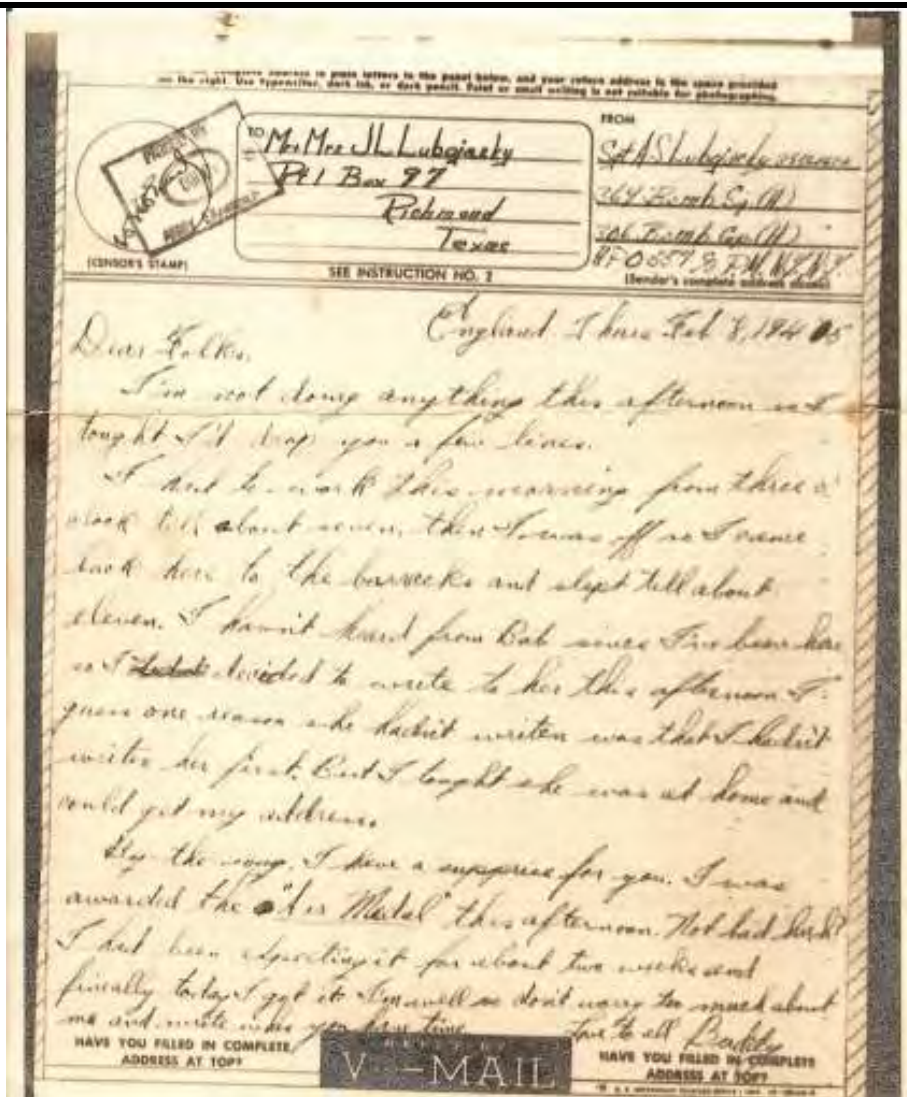 complete address in plain letters in the panel below, and your return address in the space provided
on the right. Use typewriter, dark ink, or dark pencil. Faint or small writing is not suitable for photographing.
(CENSOR'S STAMP)
TO
Mr Mrs JL Lubojacky
Rt 1 Box 97
Richmond
Texas
SEE INSTRUCTION NO. 2
FROM
Sgt A S Lubojacky
369 Bomb Sq (H)
306 Bomb Grp (H)
APO 557 % P.M. N.Y. N.Y.
(Sender's complete address above)
England. Thurs Feb 8, 1945
Dear Folks,
I'm not doing anything this afternoon so I
tought I'd drop you a few lines.
I had to work this morning from three o'
clock till about seven, then I was off so I came
back here to the barracks and slept till about
eleven. I havn't heard from Bab since I've been here
so I decided to write to her this afternoon. I
guess one reason she hadn't writen was that I hadn't
writen her first. But I tought she was at home and
could get my address.
By the way, I have a supprise for you. I was
awarded the "Air Medal" this afternoon. Not bad huh?
I had been expecting it for about two weeks and
fineally today I got it. I'm well so don't worry too much about
me and write when you have time. Love to all Buddy
HAVE YOU FILLED IN COMPLETE
ADDRESS AT TOP?
V--MAIL
HAVE YOU FILLED IN COMPLETE
ADDRESS AT TOP?